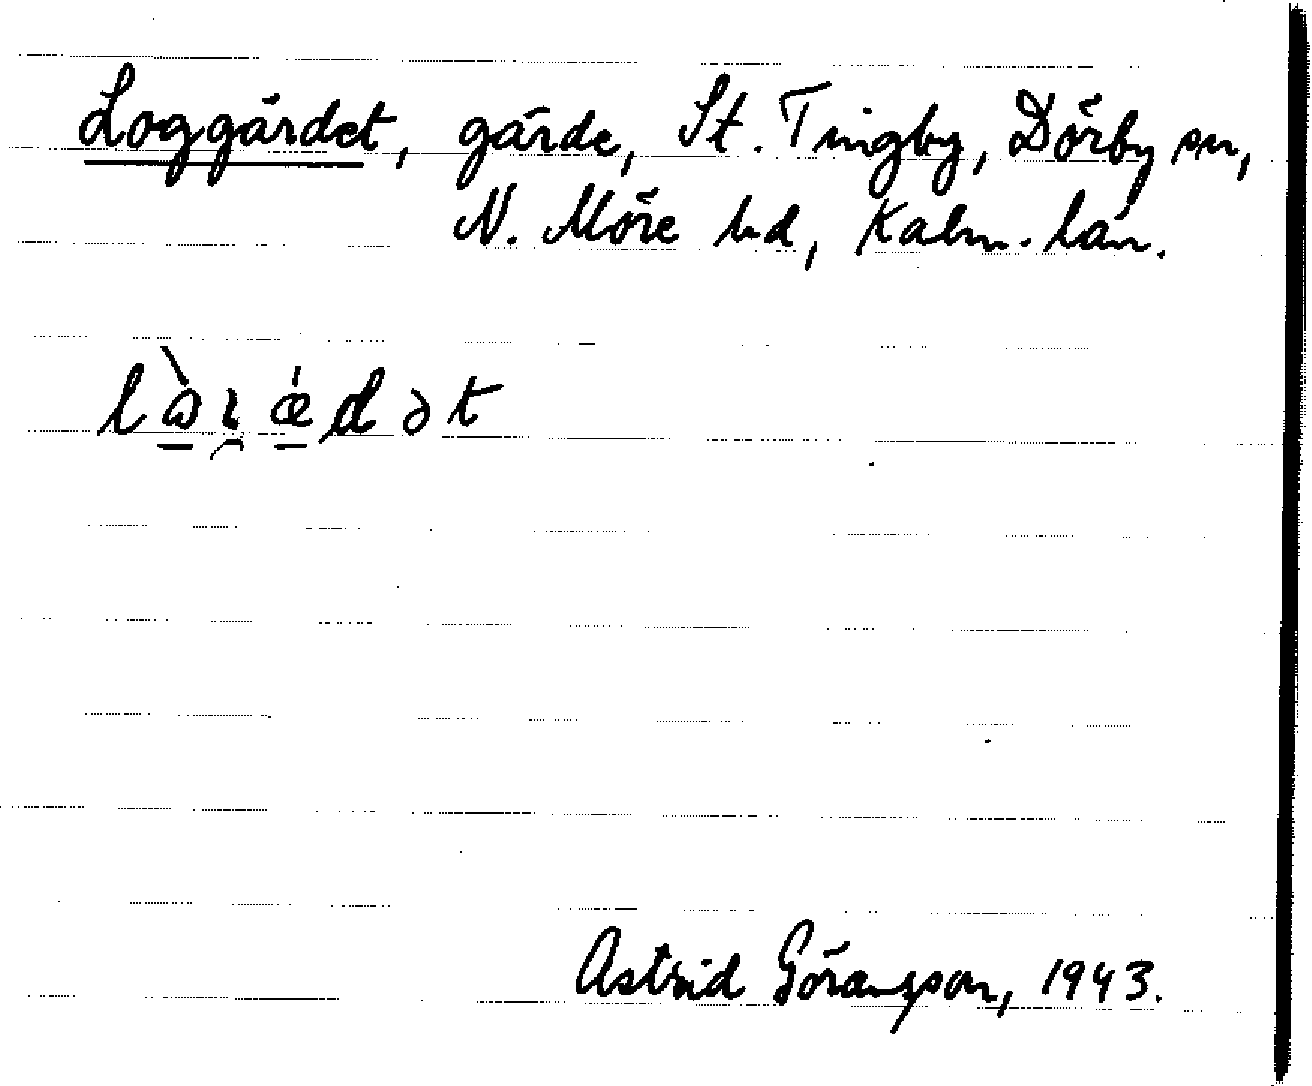 Loggärdet, gärde, St. Tingby, Dörby sn,
N. Möre hd, Kalm. län.
Astrid Göransson, 1943.